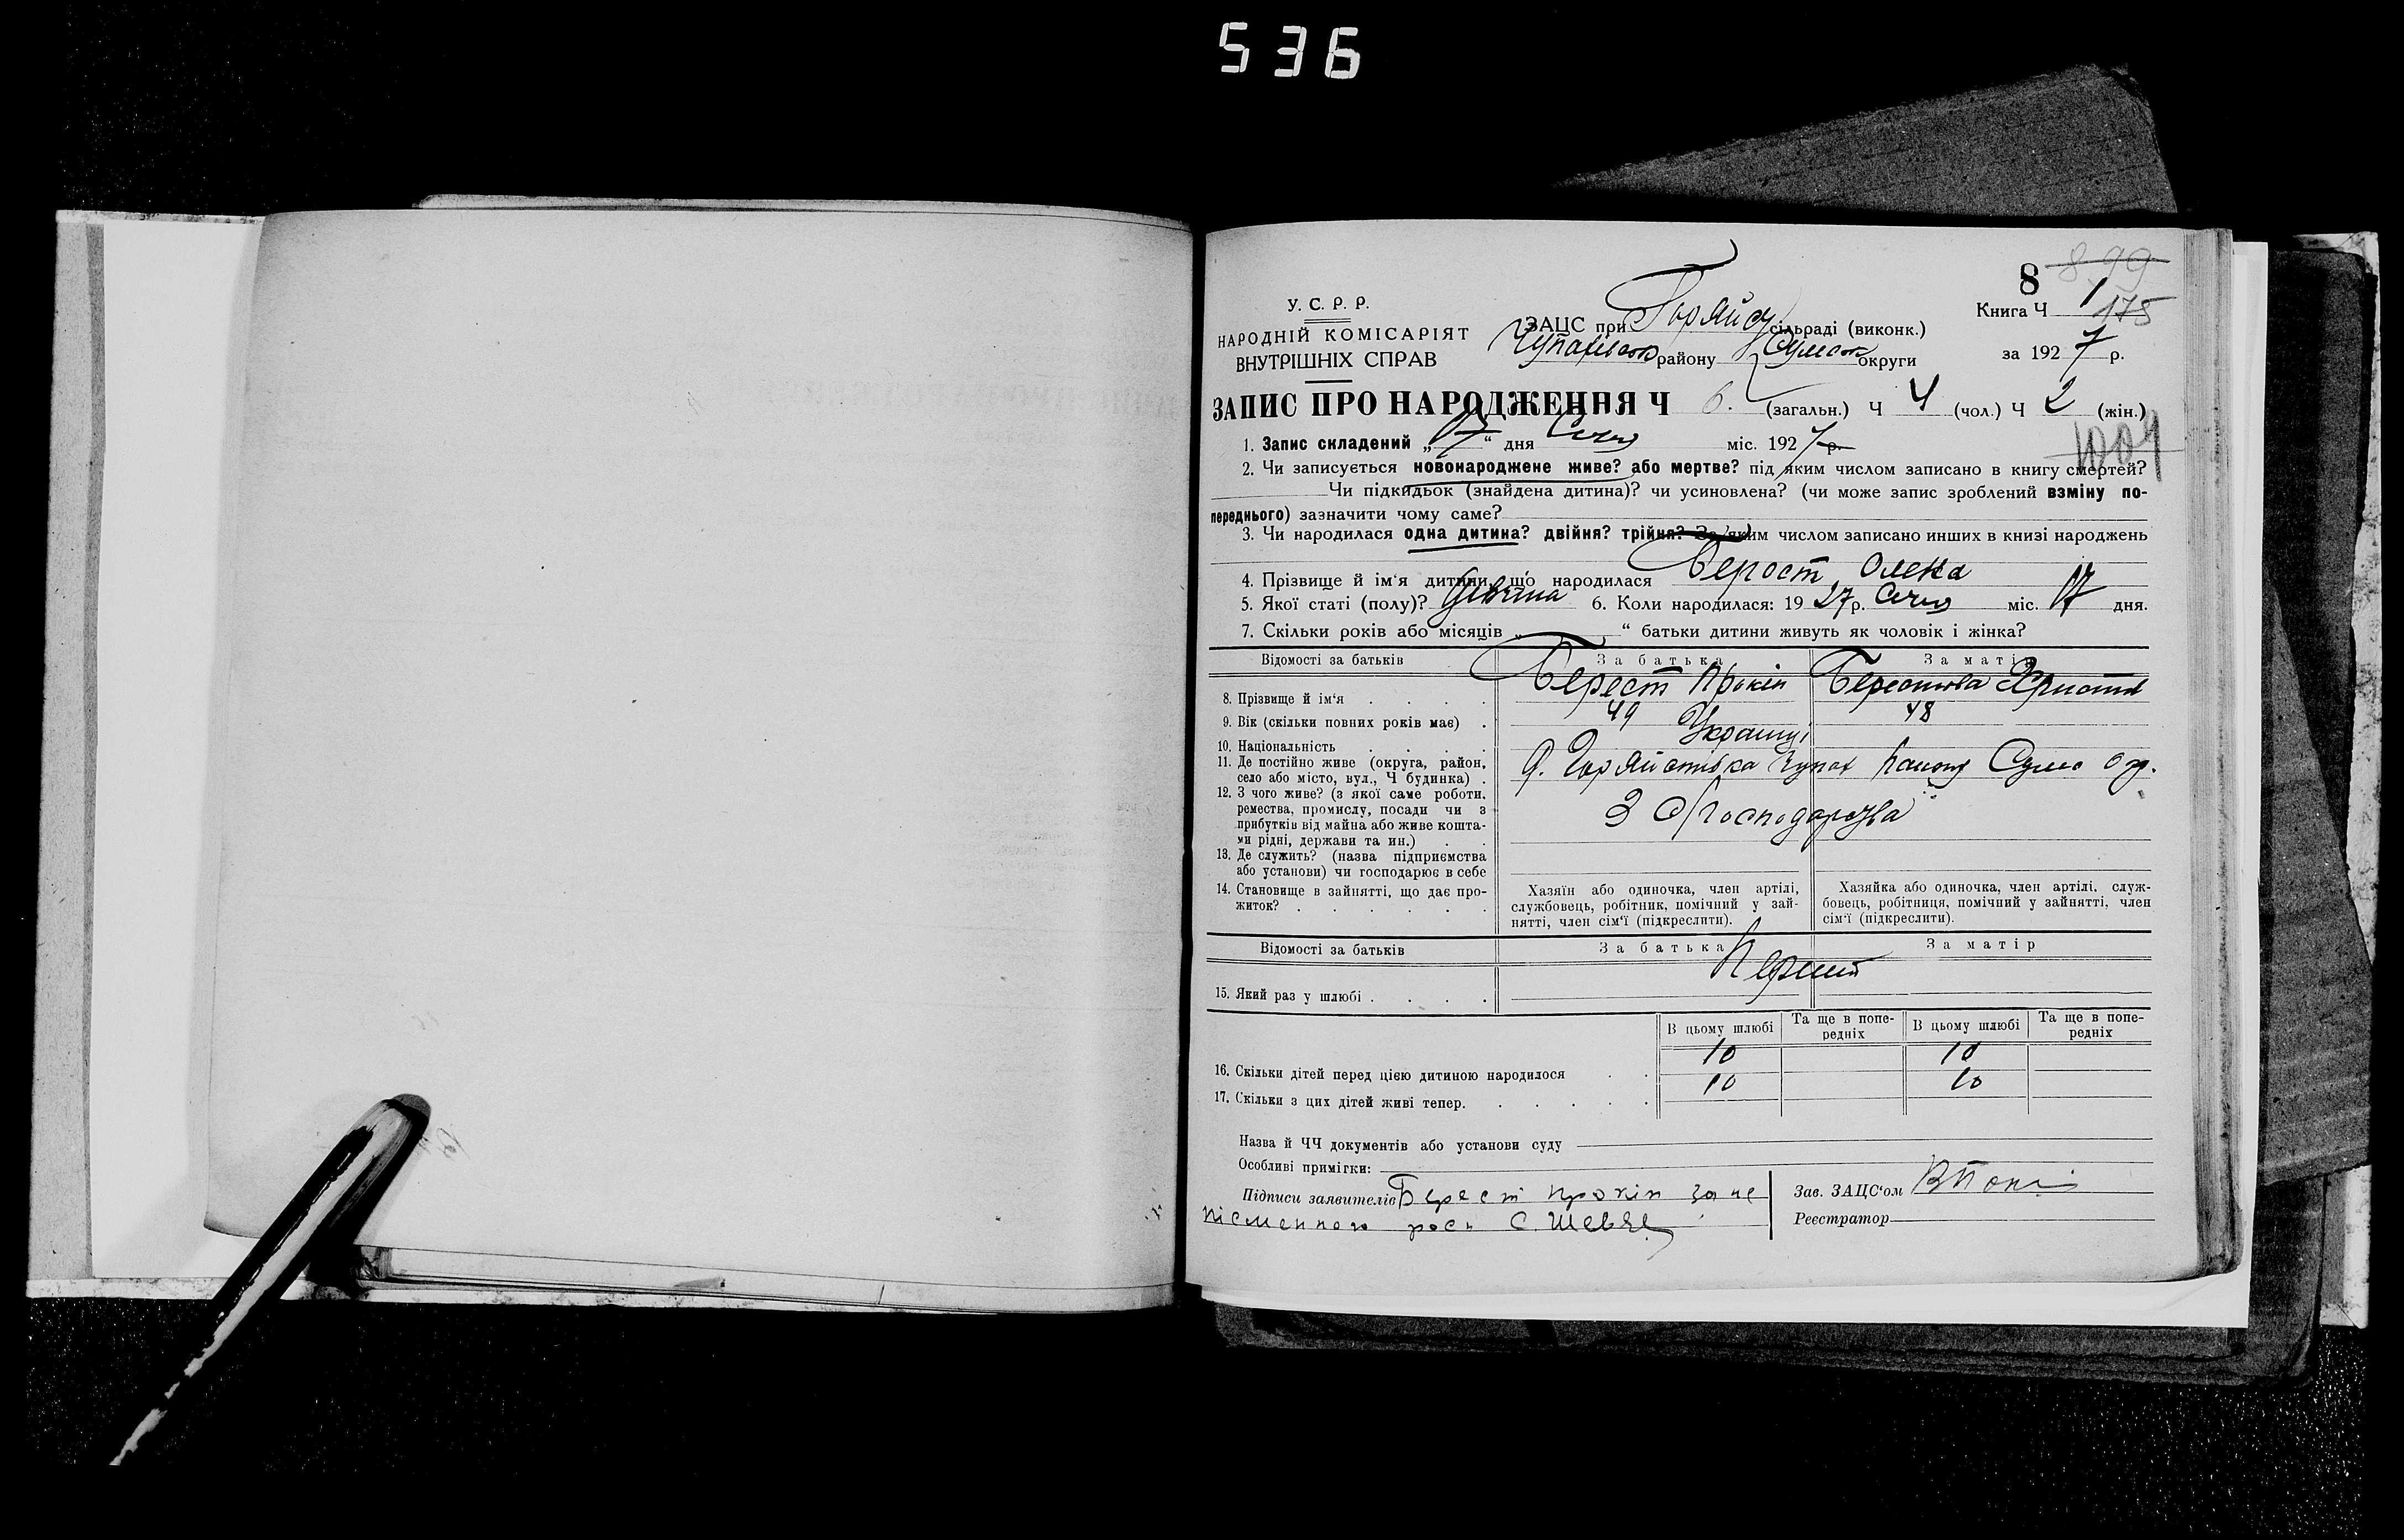 536
8 8.99
У. С. Р. Р.
НАРОДНІЙ КОМІСАРІЯТ
ВНУТРІШНІХ СПРАВ
ЗАЦС при Горяйс сільраді (виконк.)
Чупахівськ району Сумськ округи
Книга Ч 1
175
за 1927 р.
ЗАПИС ПРО НАРОДЖЕННЯ Ч 6. (загальн.) Ч 4 (чол.) Ч 2 (жін.)
1004
1. Запис складений „17“ дня Січня міс. 1927 р.
2. Чи записується новонароджене живе? або мертве? під яким числом записано в книгу смертей?
Чи підкидьок (знайдена дитина)? чи усиновлена? (чи може запис зроблений взміну по-
переднього) зазначити чому саме?
3. Чи народилася одна дитина? двійня? трійня? За яким числом записано инших в книзі народжень
4. Прізвище й ім‘я дитини, що народилася Берест Олена
5. Якої статі (полу)? Дівчина 6. Коли народилася: 1927 р. Січня міс. 17 дня.
7. Скільки років або місяців „ “ батьки дитини живуть як чоловік і жінка?
Відомості за батьків За батька За матір
8. Прізвище й ім‘я . . . . Берест Прокіп Берестова Христя
9. Вік (скільки повних років має) . 49 48
10. Національність . . . . Українці
11. Де постійно живе (округа, район,
село або місто, вул., Ч будинка) . Горяйстівка Чупах Району Сумс окр.
12. З чого живе? (з якої саме роботи,
ремества, промислу, посади чи з
прибутків від майна або живе кошта-
ми рідні, держави та ин.) . . З Господарства
13. Де служить? (назва підприємства
або установи) чи господарює в себе
14. Становище в зайнятті, що дає про-
житок? . . . . . .
Хазяїн або одиночка, член артілі,
службовець, робітник, помічний у зай-
нятті, член сім‘ї (підкреслити).
Хазяйка або одиночка, член артілі, служ-
бовець, робітниця, помічний у зайнятті, член
сім‘ї (підкреслити).
Відомості за батьків За батька За матір
15. Який раз у шлюбі . . . . Перший
В цьому шлюбі Та ще в попе-
редніх В цьому шлюбі Та ще в попе-
редніх
16. Скільки дітей перед цією дитиною народилося . . 10 10
17. Скільки з цих дітей живі тепер. . . . . . 10 10
Назва й ЧЧ документів або установи суду
Особливі примітки:
Підписи заявителів Берест Прокіп за не
письменного росп С. Шевче
Зав. ЗАЦС‘ом
Реєстратор